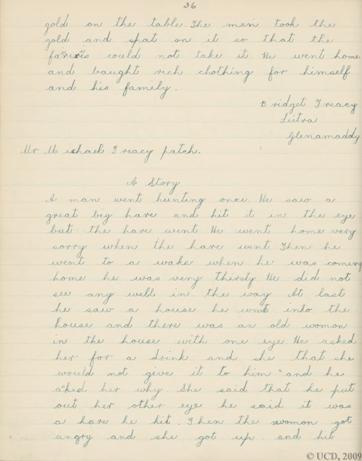 36
gold on the table. The man took the
gold and spat on it so that the
fairies could not take it He went home
and baught rich clothing for himself
and his family.
Bridget Treacy
Lutra
Glenamaddy
Mr Michael Treacy patch.
A Story
A man went hunting once. He saw a
great big hare and hit it in the eye
but the hare went He went home very
sorry when the hare went Then he
went to a wake when he was coming
home he was very thirsty He did not
see any well in the way At last
he saw a house he went into the
house and there was an old woman
in the house with one eye. He asked
her for a drink and she that she
would not give it to him and he
asked her why She said that he put
out her other eye he said it was
a hare he hit. Then the woman got
angry and she got up and hit
© UCD, 2009